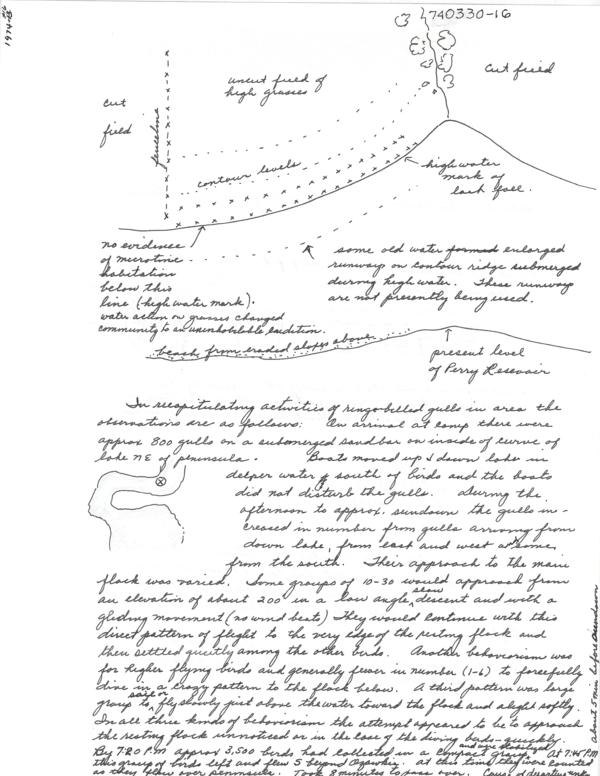 740330-16
1974-
uncut field of
high grasses
cut field
cut
field
fenceline
contour levels
high water
mark of
last fall.
no evidence
of microtine
habitation
below this
line (high water mark).
water action on grasses changed
community to an uninhabitable condition.
some old water formed enlarged
runways on contour ridge submerged
during high water. These runways
are not presently being used.
beach from eroded slopes above
present level
of Perry Reservoir
In recapitulating activities of ring-billed gulls in area the
observations are as follows: On arrival at camp there were
approx 800 gulls on a submerged sandbar on inside of curve of
lake NE of peninsula. Boats moved up & down lake in
deeper water south of birds and the boats
did not disturb the gulls. During the
afternoon to approx. sundown the gulls in-
creased in number from gulls arriving from
down lake, from east and west & some
from the south. Their approach to the main
flock was varied. Some groups of 10-30 would approach from
an elevation of about 200' in a low angle, slow descent and with a
gliding movement (no wind beats) They would continue with this
direct pattern of flight to the very edge of the resting flock and
then settled quietly among the other birds. Another behaviorism was
for higher flying birds and generally fewer in number (1-6) to forcefully
dive in a crazy pattern to the flock below. A third pattern was large
group to fly slowly just above the water toward the flock and alight softly.
In all three kinds of behaviorism the attempt appeared to be to approach
the resting flock unnoticed or in the case of the diving birds - quickly.
By 7:20 P.M approx 3,500 birds had collected in a compact group, and were stabilized At 7:45 P.M
this group of birds left and flew S beyond Ozawkie. At this time they were counted
as they flew over peninsula. Took 8 minutes to pass over. Cause of departure unk
about 5 min before sundown